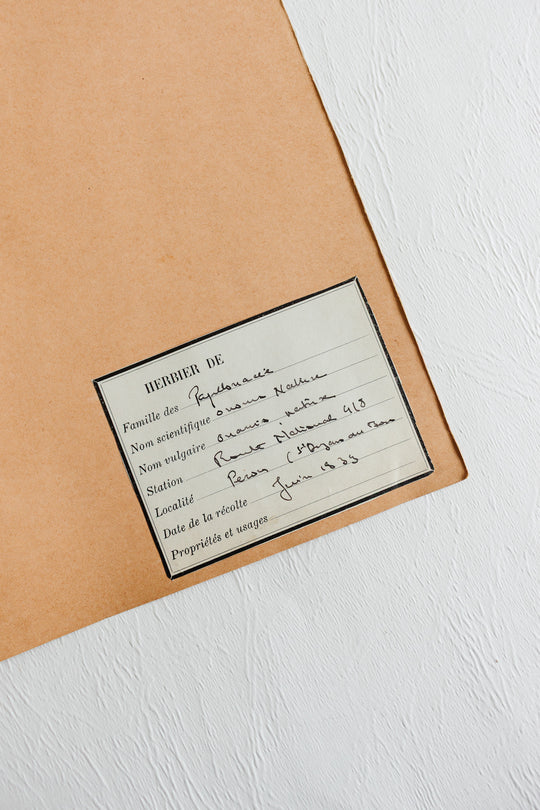 HERBIER DE
Famille des Papillonacée
Nom scientifique ononis Natrix
Nom vulgaire ononis natrix
Station Route Nationale
Localité
Date de la récolte Juin
Propriétés et usages